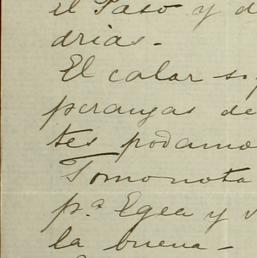 el Paso y d
drias.-
El calor so
peranzas de
tes podamo
Tomo nota
p.ª Egea y v
la buena-